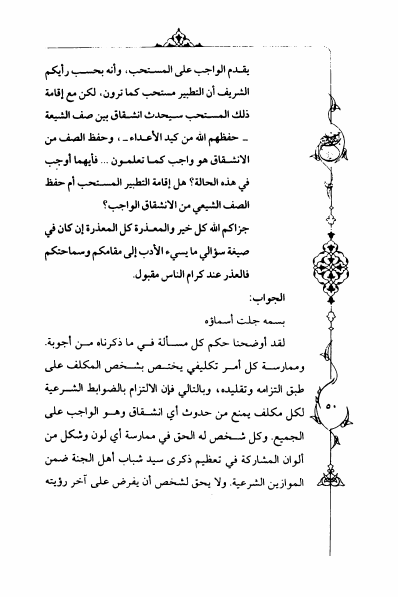 يقدم الواجب على المستحب، وأنه بحسب رأيكم
الشريف أن التطبير مستحب كما ترون، لكن مع إقامة
ذلك المستحب سيحدث انشقاق بين صف الشيعة
ـ حفظهم الله من كيد الأعداء ـ، وحفظ الصف من
الانشقاق هو واجب كما تعلمون ... فأيهما أوجب
في هذه الحالة؟ هل إقامة التطبير المستحب أم حفظ
الصف الشيعي من الانشقاق الواجب؟
جزاكم الله كل خير والمعذرة كل المعذرة إن كان في
صيغة سؤالي ما يسيء الأدب إلى مقامكم وسماحتكم
فالعذر عند كرام الناس مقبول.
الجواب:
بسمه جلت أسماؤه
لقد أوضحنا حكم كل مسألة في ما ذكرناه من أجوبة.
وممارسة كل أمر تكليفي يختص بشخص المكلف على
طبق التزامه وتقليده، وبالتالي فإن الالتزام بالضوابط الشرعية
لكل مكلف يمنع من حدوث أي انشقاق وهو الواجب على
الجميع. وكل شخص له الحق في ممارسة أي لون وشكل من
ألوان المشاركة في تعظيم ذكرى سيد شباب أهل الجنة ضمن
الموازين الشرعية. ولا يحق لشخص أن يفرض على آخر رؤيته
٥٠